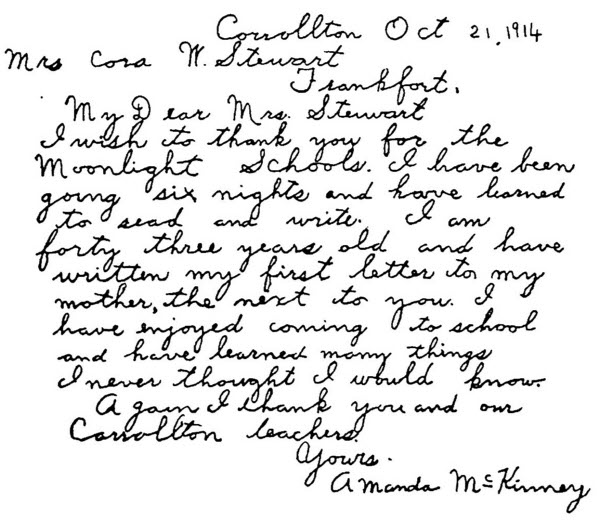 Carrollton Oct 21, 1914
Mrs Cora W. Stewart
Frankfort.
My Dear Mrs. Stewart
I wish to thank you for the
Moonlight Schools. I have been
going six nights and have learned
to read and write. I am
forty three years old and have
written my first letter to my
mother, the next to you. I
have enjoyed coming to school
and have learned many things
I never thought I would know.
Again I thank you and our
Carrollton teachers.
Yours.
Amanda McKinney